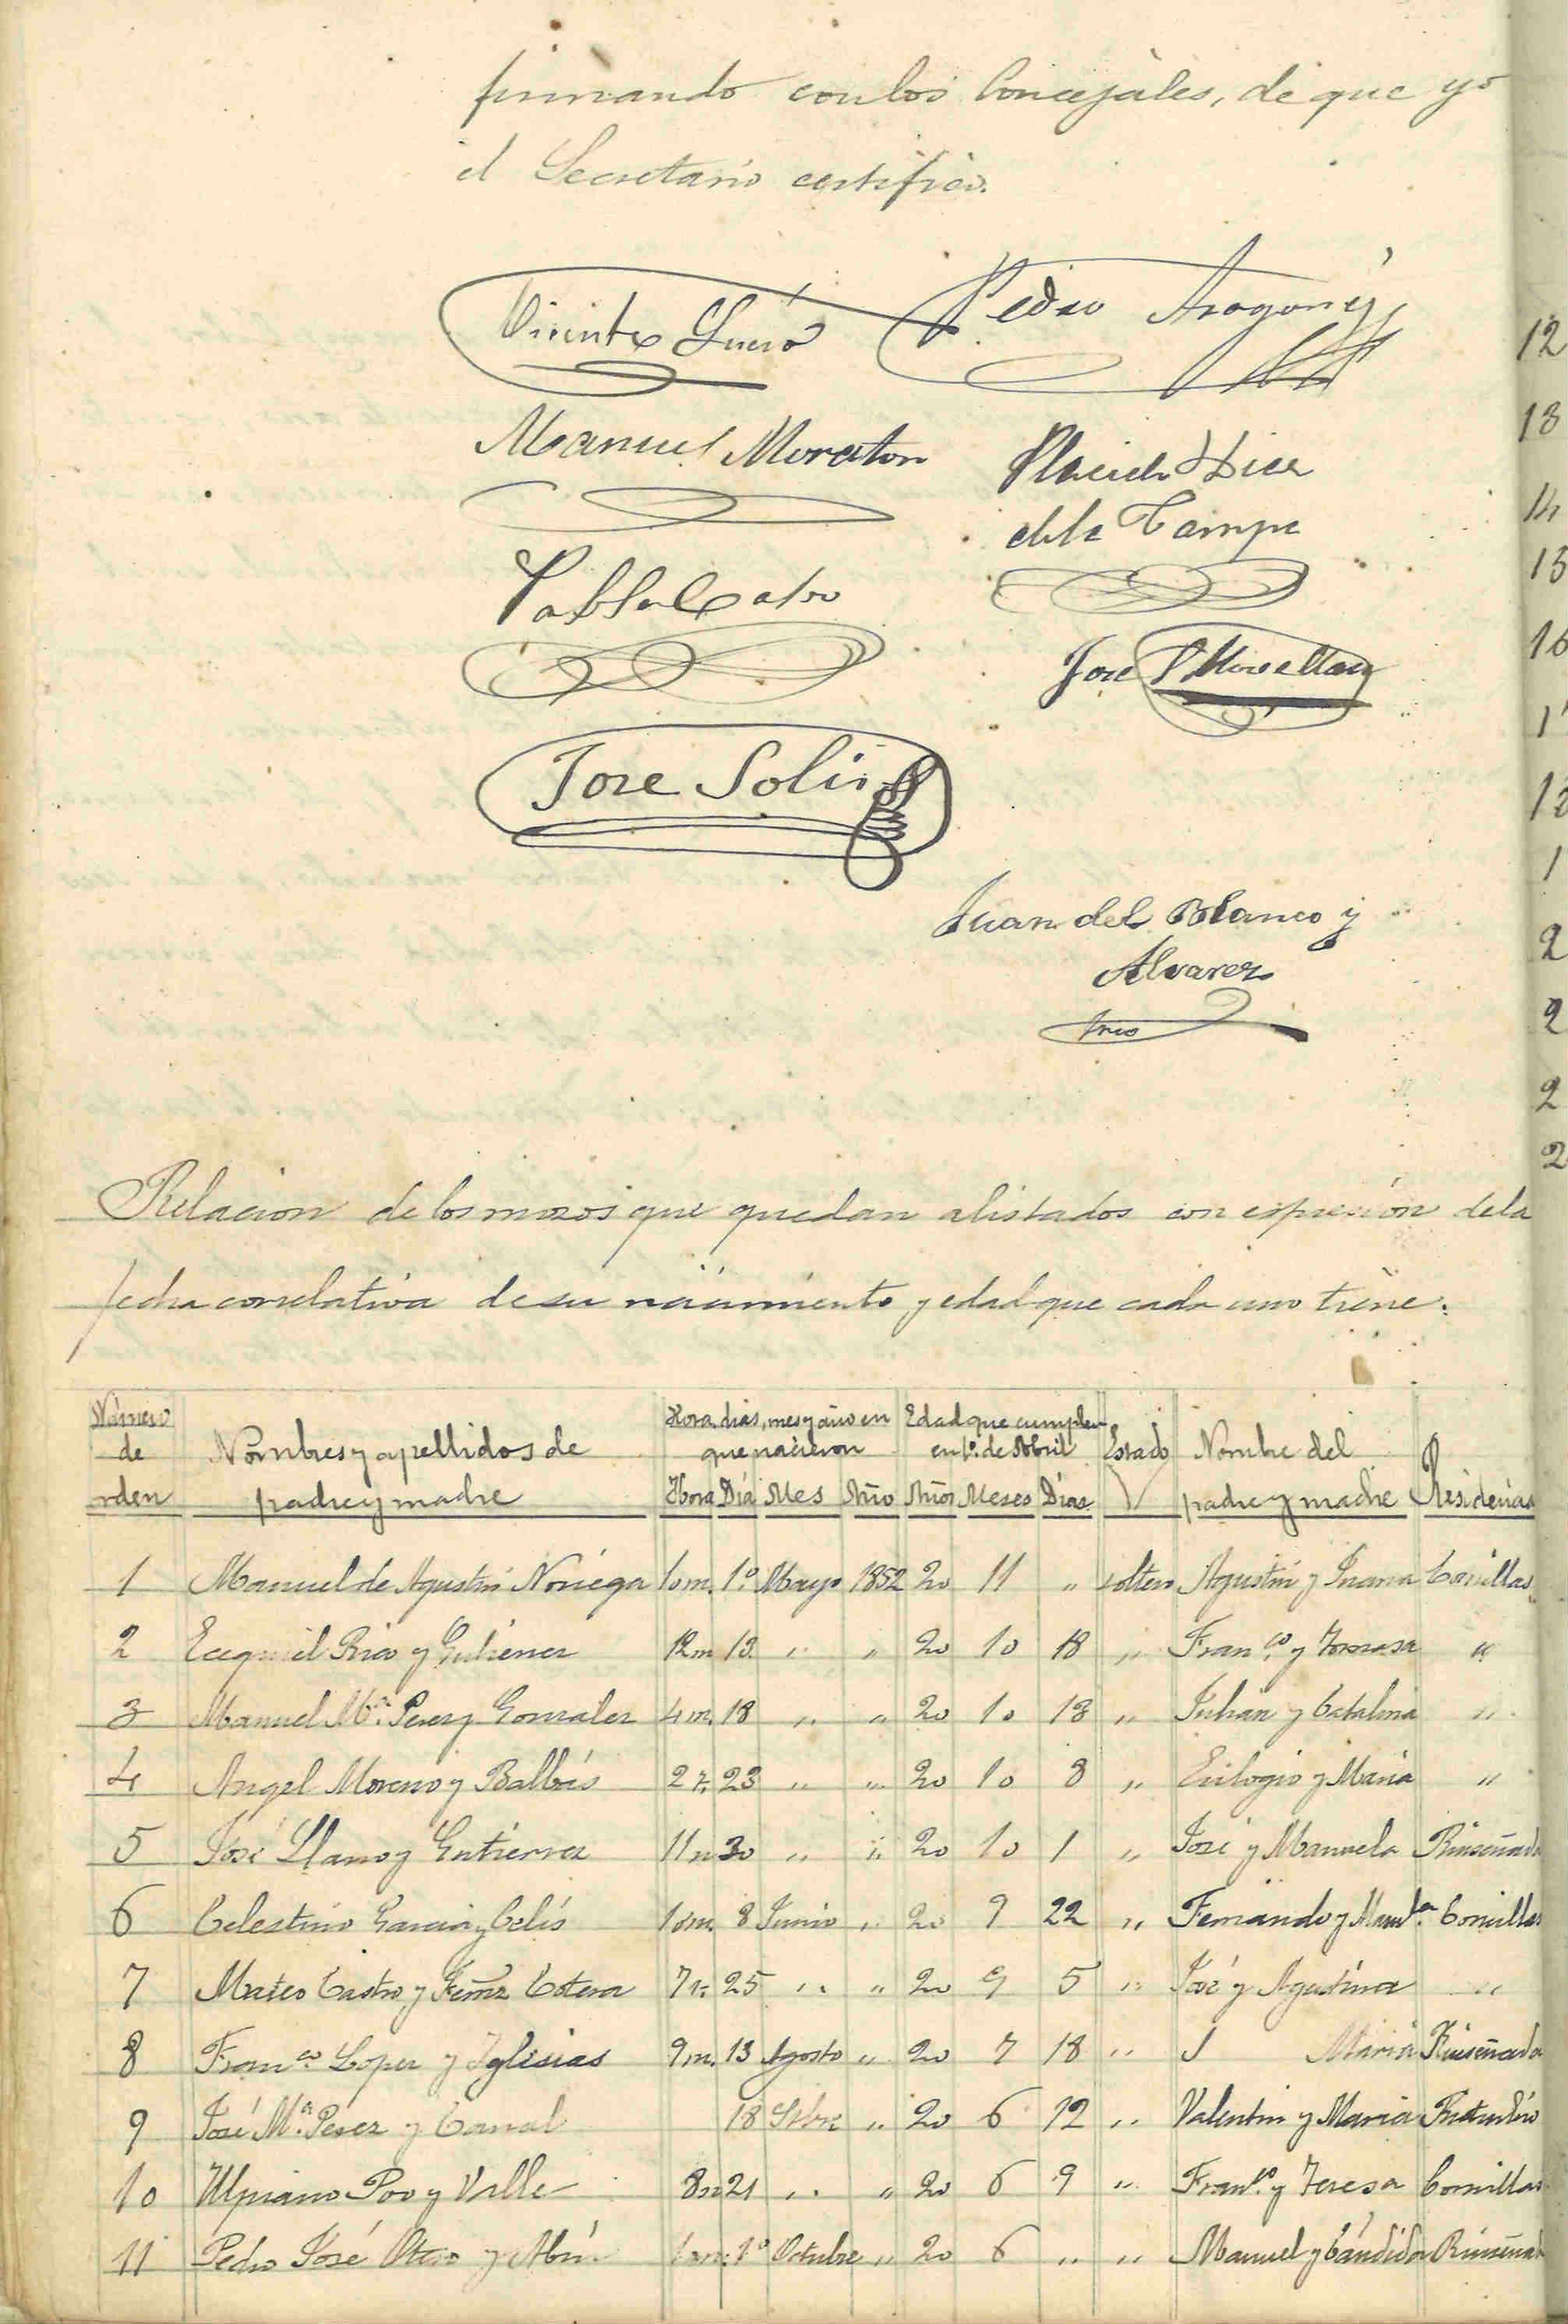 firmando con los Concejales, de que yo
el Secretario certifico.
Vicente Pedro Aragones
Manuel Moraton Placido Diaz
de la Campa
Pablo Calvo
Jose
Jose Solis
Juan del Blanco y
Alvarez
Srio
Relacion de los mozos que quedan alistados con espresion de la
fecha correlativa de su nacimiento y edad que cada uno tiene.
Número de orden Nombres y apellidos de padre y madre Hora, dias, mes y año en que nacieron Edad que cumplen en 1º. de Abril Estado Nombre del padre y madre Residencia
Hora Dia Mes Año Años Meses Dias
1 Manuel de Agustin Noriega 10 m. 1º. Mayo 1852 20 11 " soltero Agustin y Juana Comillas
2 Ecequiel Rio y Gutierrez 12 m 13 " " 20 10 18 " Franco. y Tomasa "
3 Manuel Mª. Perez y Gonzalez 4 m. 18 " " 20 10 13 " Julian y Catalina "
4 Angel Moreno y Balbás 2 t. 23 " " 20 10 8 " Eulogio y Maria "
5 José Llano y Gutierrez 11 n 30 " " 20 10 1 " José y Manuela Ruiseñada
6 Celestino Garcia y Celis 10 m. 8 Junio " 20 9 22 " Fernando y Manla. Comillas
7 Mateo Castro y Fernz Cotera 7 t. 25 " " 20 9 5 " José y Agustina "
8 Franco Lopez y Yglesias 9 m. 13 Agosto " 20 7 18 " Maria Ruiseñada
9 José Mª. Pérez y Canal 18 Stbre " 20 6 12 " Valentin y Maria
10 Ulpiano Poo y Valle 8 n 21 " " 20 6 9 " Franco. y Teresa Comillas
11 Pedro José Otero y 1º Octubre " 20 6 " " Manuel y Cándida Ruiseñada
12
13
14
15
16